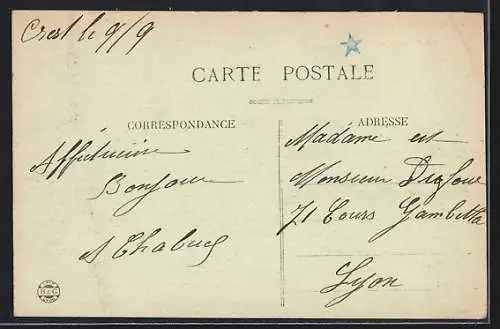 Crest le 9/9
CARTE POSTALE
CORRESPONDANCE
ADRESSE
Affectueux
Bonjour
Madame et
Monsieur
71 Cours Gambetta
Lyon
B&G